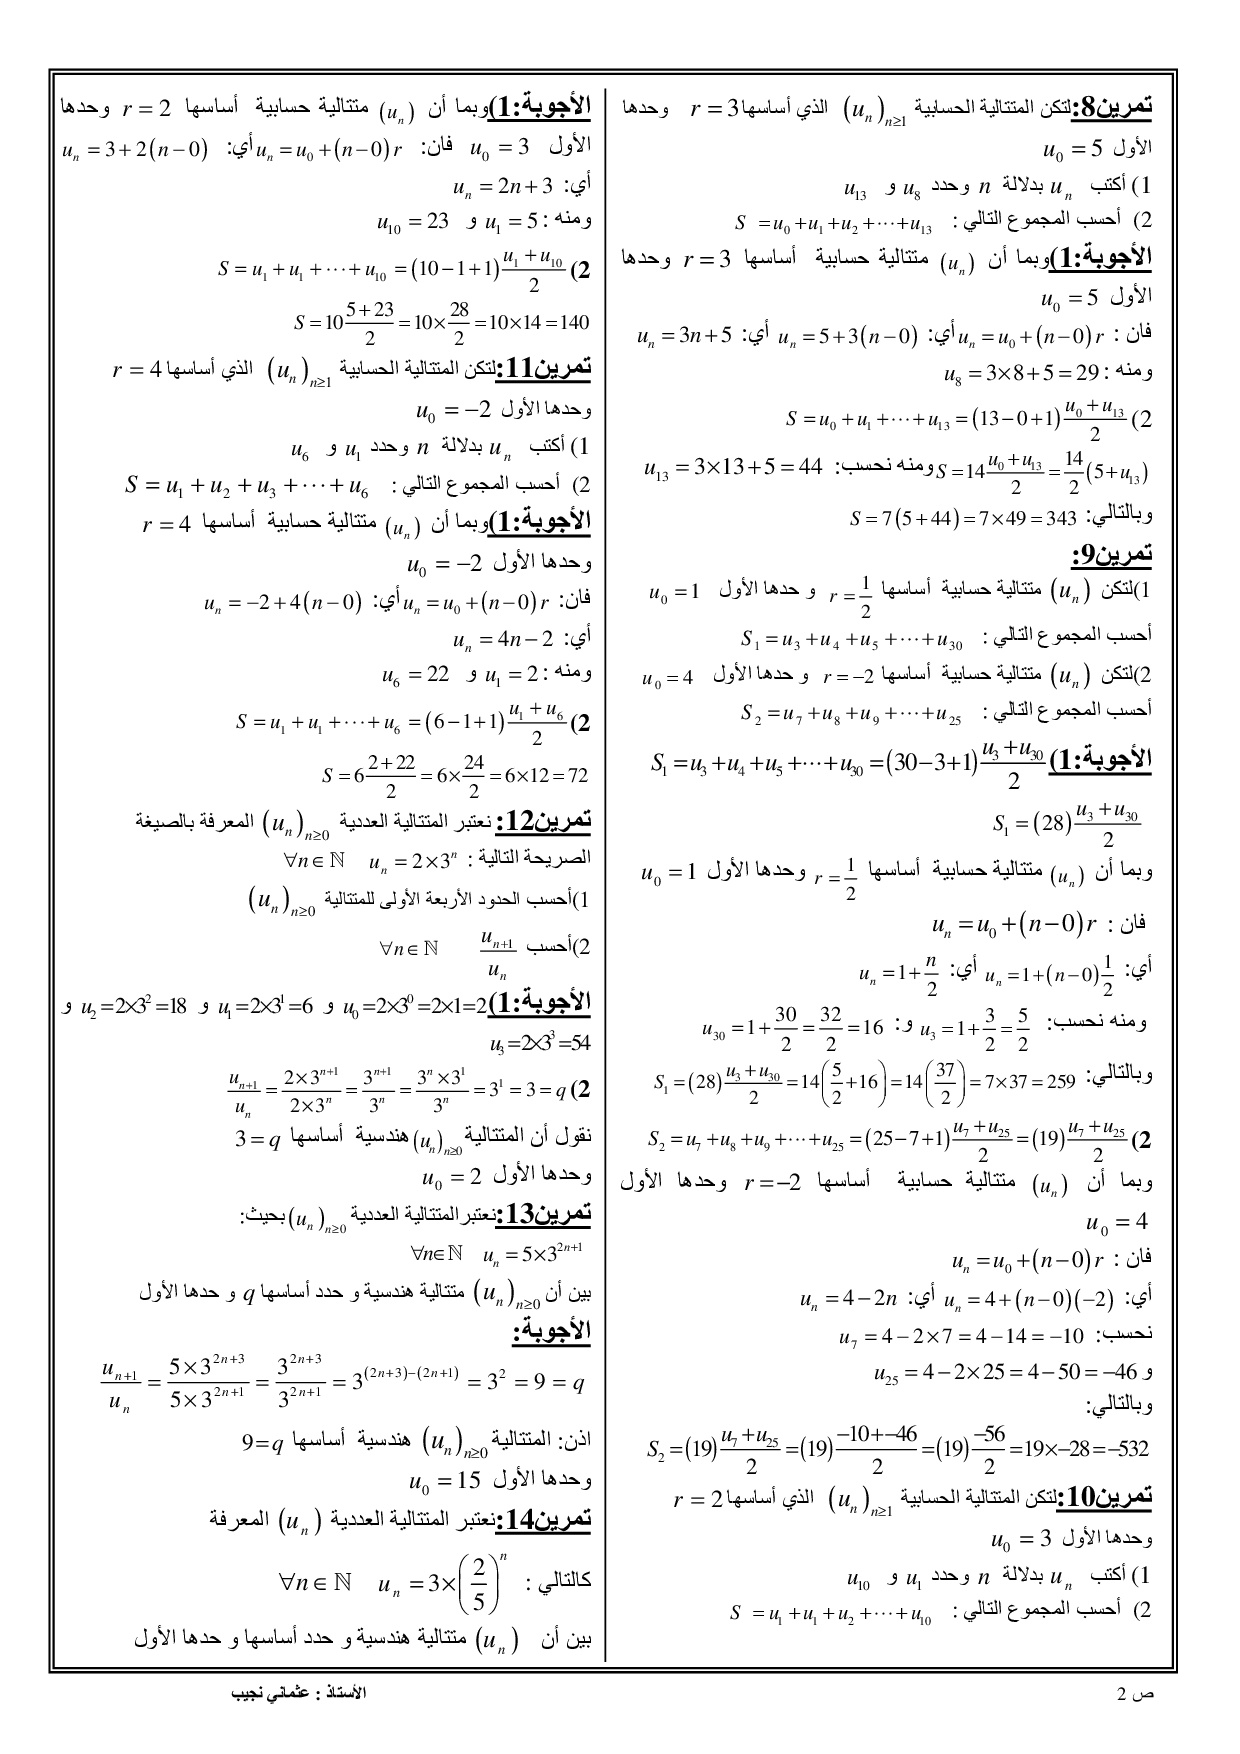 تمرين8:لتكن المتتالية الحسابية (u_n)_{n≥1} الذي أساسها r = 3 وحدها
الأول u_0 = 5
1) أكتب u_n بدلالة n وحدد u_8 و u_13
2) أحسب المجموع التالي : S = u_0 + u_1 + u_2 + ⋯ + u_13
الأجوبة:1)وبما أن (u_n) متتالية حسابية أساسها r = 3 وحدها
الأول u_0 = 5
فان : u_n = u_0 + (n − 0) r أي: u_n = 5 + 3(n − 0) أي: u_n = 3n + 5
ومنه : u_8 = 3×8 + 5 = 29
2) S = u_0 + u_1 + ⋯ + u_13 = (13 − 0 + 1) (u_0 + u_13)/2
S = 14 (u_0 + u_13)/2 = 14/2 (5 + u_13) ومنه نحسب: u_13 = 3×13 + 5 = 44
وبالتالي: S = 7(5 + 44) = 7×49 = 343
تمرين9:
1)لتكن (u_n) متتالية حسابية أساسها r = 1/2 و حدها الأول u_0 = 1
أحسب المجموع التالي : S_1 = u_3 + u_4 + u_5 + ⋯ + u_30
2)لتكن (u_n) متتالية حسابية أساسها r = −2 و حدها الأول u_0 = 4
أحسب المجموع التالي : S_2 = u_7 + u_8 + u_9 + ⋯ + u_25
الأجوبة:1) S_1 = u_3 + u_4 + u_5 + ⋯ + u_30 = (30−3+1) (u_3 + u_30)/2
S_1 = (28) (u_3 + u_30)/2
وبما أن (u_n) متتالية حسابية أساسها r = 1/2 وحدها الأول u_0 = 1
فان : u_n = u_0 + (n − 0) r
أي: u_n = 1 + (n − 0) 1/2 أي: u_n = 1 + n/2
ومنه نحسب: u_3 = 1 + 3/2 = 5/2 و: u_30 = 1 + 30/2 = 32/2 = 16
وبالتالي: S_1 = (28) (u_3 + u_30)/2 = 14(5/2 + 16) = 14(37/2) = 7×37 = 259
2) S_2 = u_7 + u_8 + u_9 + ⋯ + u_25 = (25 − 7 + 1) (u_7 + u_25)/2 = (19) (u_7 + u_25)/2
وبما أن (u_n) متتالية حسابية أساسها r = −2 وحدها الأول
u_0 = 4
فان : u_n = u_0 + (n − 0) r
أي: u_n = 4 + (n − 0)(−2) أي: u_n = 4 − 2n
نحسب: u_7 = 4 − 2×7 = 4 − 14 = −10
و u_25 = 4 − 2×25 = 4 − 50 = −46
وبالتالي:
S_2 = (19) (u_7 + u_25)/2 = (19) (−10 + −46)/2 = (19) −56/2 = 19×−28 = −532
تمرين10:لتكن المتتالية الحسابية (u_n)_{n≥1} الذي أساسها r = 2
وحدها الأول u_0 = 3
1) أكتب u_n بدلالة n وحدد u_1 و u_10
2) أحسب المجموع التالي : S = u_1 + u_1 + u_2 + ⋯ + u_10
الأجوبة:1)وبما أن (u_n) متتالية حسابية أساسها r = 2 وحدها
الأول u_0 = 3 فان: u_n = u_0 + (n − 0) r أي: u_n = 3 + 2(n − 0)
أي: u_n = 2n + 3
ومنه : u_1 = 5 و u_10 = 23
2) S = u_1 + u_1 + ⋯ + u_10 = (10 − 1 + 1) (u_1 + u_10)/2
S = 10 (5 + 23)/2 = 10× 28/2 = 10×14 = 140
تمرين11:لتكن المتتالية الحسابية (u_n)_{n≥1} الذي أساسها r = 4
وحدها الأول u_0 = −2
1) أكتب u_n بدلالة n وحدد u_1 و u_6
2) أحسب المجموع التالي : S = u_1 + u_2 + u_3 + ⋯ + u_6
الأجوبة:1)وبما أن (u_n) متتالية حسابية أساسها r = 4
وحدها الأول u_0 = −2
فان: u_n = u_0 + (n − 0) r أي: u_n = −2 + 4(n − 0)
أي: u_n = 4n − 2
ومنه : u_1 = 2 و u_6 = 22
2) S = u_1 + u_1 + ⋯ + u_6 = (6 − 1 + 1) (u_1 + u_6)/2
S = 6 (2 + 22)/2 = 6× 24/2 = 6×12 = 72
تمرين12: نعتبر المتتالية العددية (u_n)_{n≥0} المعرفة بالصيغة
الصريحة التالية : u_n = 2×3^n ∀n ∈ ℕ
1)أحسب الحدود الأربعة الأولى للمتتالية (u_n)_{n≥0}
2)أحسب u_{n+1}/u_n ∀n ∈ ℕ
الأجوبة:1) u_0 = 2×3^0 = 2×1 = 2 و u_1 = 2×3^1 = 6 و u_2 = 2×3^2 = 18 و
u_3 = 2×3^3 = 54
2) u_{n+1}/u_n = (2×3^{n+1})/(2×3^n) = 3^{n+1}/3^n = (3^n×3^1)/3^n = 3^1 = 3 = q
نقول أن المتتالية (u_n)_{n≥0} هندسية أساسها 3 = q
وحدها الأول u_0 = 2
تمرين13:نعتبرالمتتالية العددية (u_n)_{n≥0} بحيث:
u_n = 5×3^{2n+1} ∀n∈ ℕ
بين أن (u_n)_{n≥0} متتالية هندسية و حدد أساسها q و حدها الأول
الأجوبة:
u_{n+1}/u_n = (5×3^{2n+3})/(5×3^{2n+1}) = 3^{2n+3}/3^{2n+1} = 3^{(2n+3)−(2n+1)} = 3^2 = 9 = q
اذن: المتتالية (u_n)_{n≥0} هندسية أساسها 9 = q
وحدها الأول u_0 = 15
تمرين14:نعتبر المتتالية العددية (u_n) المعرفة
كالتالي : u_n = 3×(2/5)^n ∀n ∈ ℕ
بين أن (u_n) متتالية هندسية و حدد أساسها و حدها الأول
ص 2
الأستاذ : عثماني نجيب